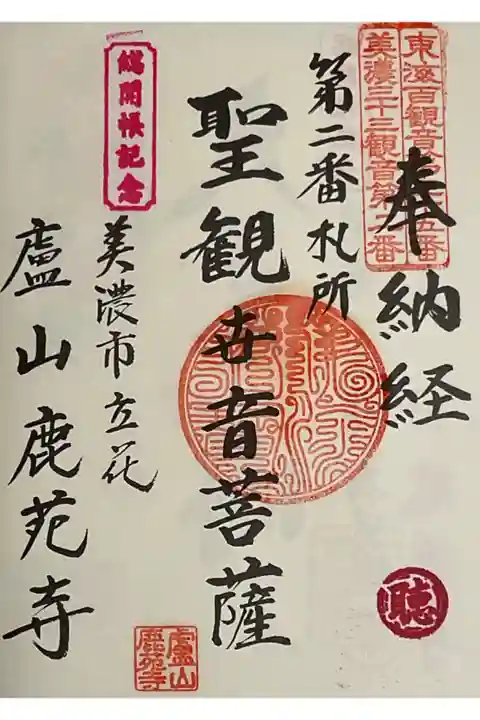 東海百観音第三十五番
美濃三十三観音第二番
奉納経
第二番札所
聖観世音菩薩
総開帳記念
美濃市立花
盧山鹿苑寺
聴
盧山
鹿苑寺